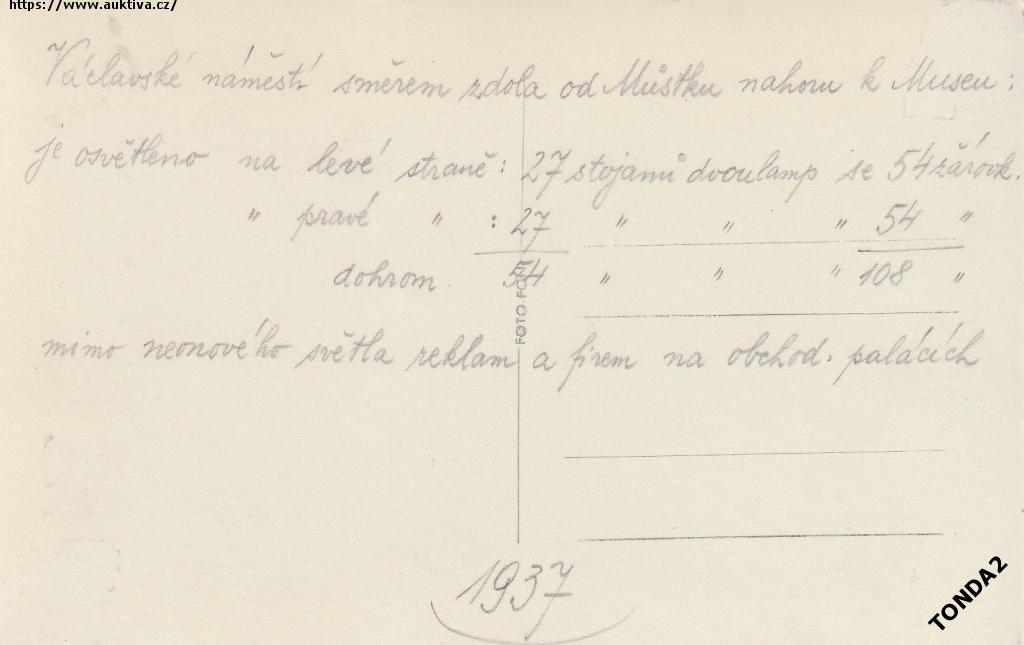 https://www.auktiva.cz/
Václavské náměstí směrem zdola od Můstku nahoru k Museu:
je osvětleno na levé straně: 27 stojanů dvoulamp se 54 žárovk.
" pravé " : 27 " " " 54 "
dohrom. 54 " " " 108 "
mimo neonového světla reklam a firem na obchod. palácích
FOTO-FO
1937
TONDA2